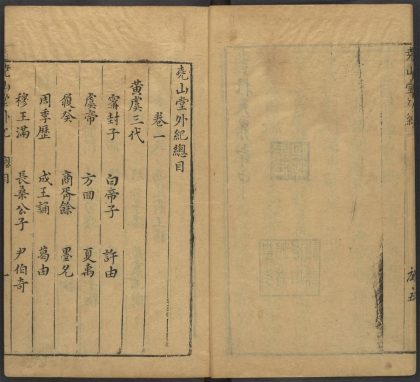 堯山堂外紀
堯山堂外紀總目
卷一
黃虞三代
甯封子　白帝子　許由
虞帝　方回　夏禹
履癸　商胥餘　墨允
周季歷　成王誦　葛由
穆王滿　長桑公子　尹伯奇
堯山堂外紀　總目　一